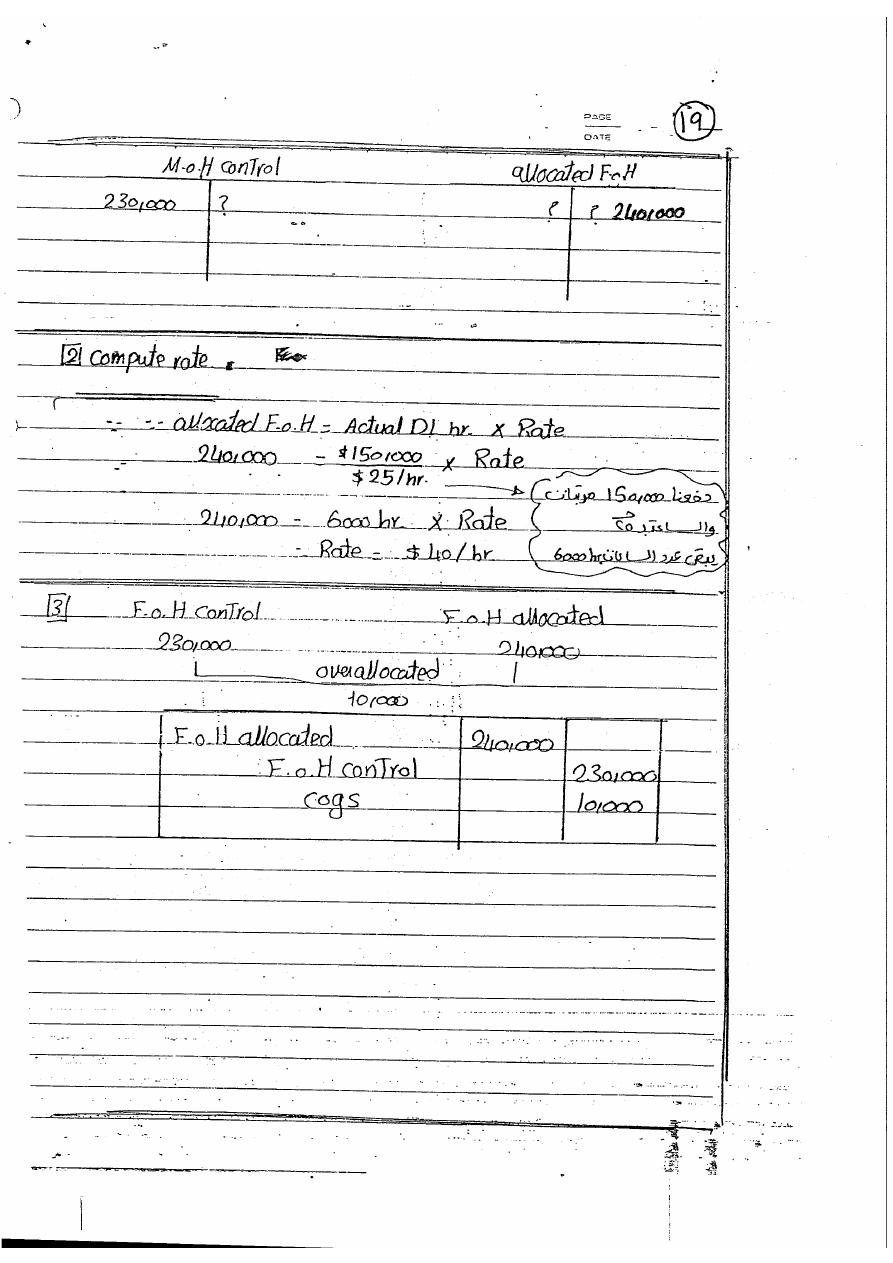 PAGE
DATE
19
M.o.H control
allocated F.o.H
230,000 ?
? ? 240,000
2 Compute rate
allocated F.o.H = Actual DL hr. x Rate
240,000 = $150,000 / $25/hr. x Rate
دفعنا 150,000 مرتبات
240,000 = 6000 hr x Rate
Rate = $40/hr
يبقى عدد الساعات 6000 hr
3 F.o.H control F.o.H allocated
230,000 240,000
overallocated
10,000
F.o.H allocated 240,000
F.o.H control 230,000
cogs 10,000